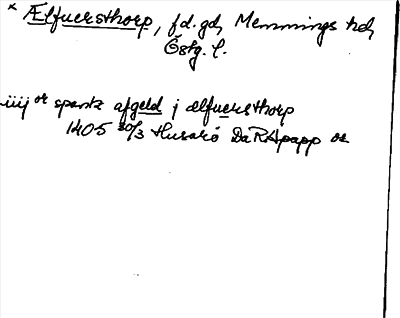 × Ælfuersthorp, f.d. gd, Memmings hd,
Östg. l.
iiij or spanta afgeld j ælfuersthorp
1405 30/3 Husarö DaRApapp or